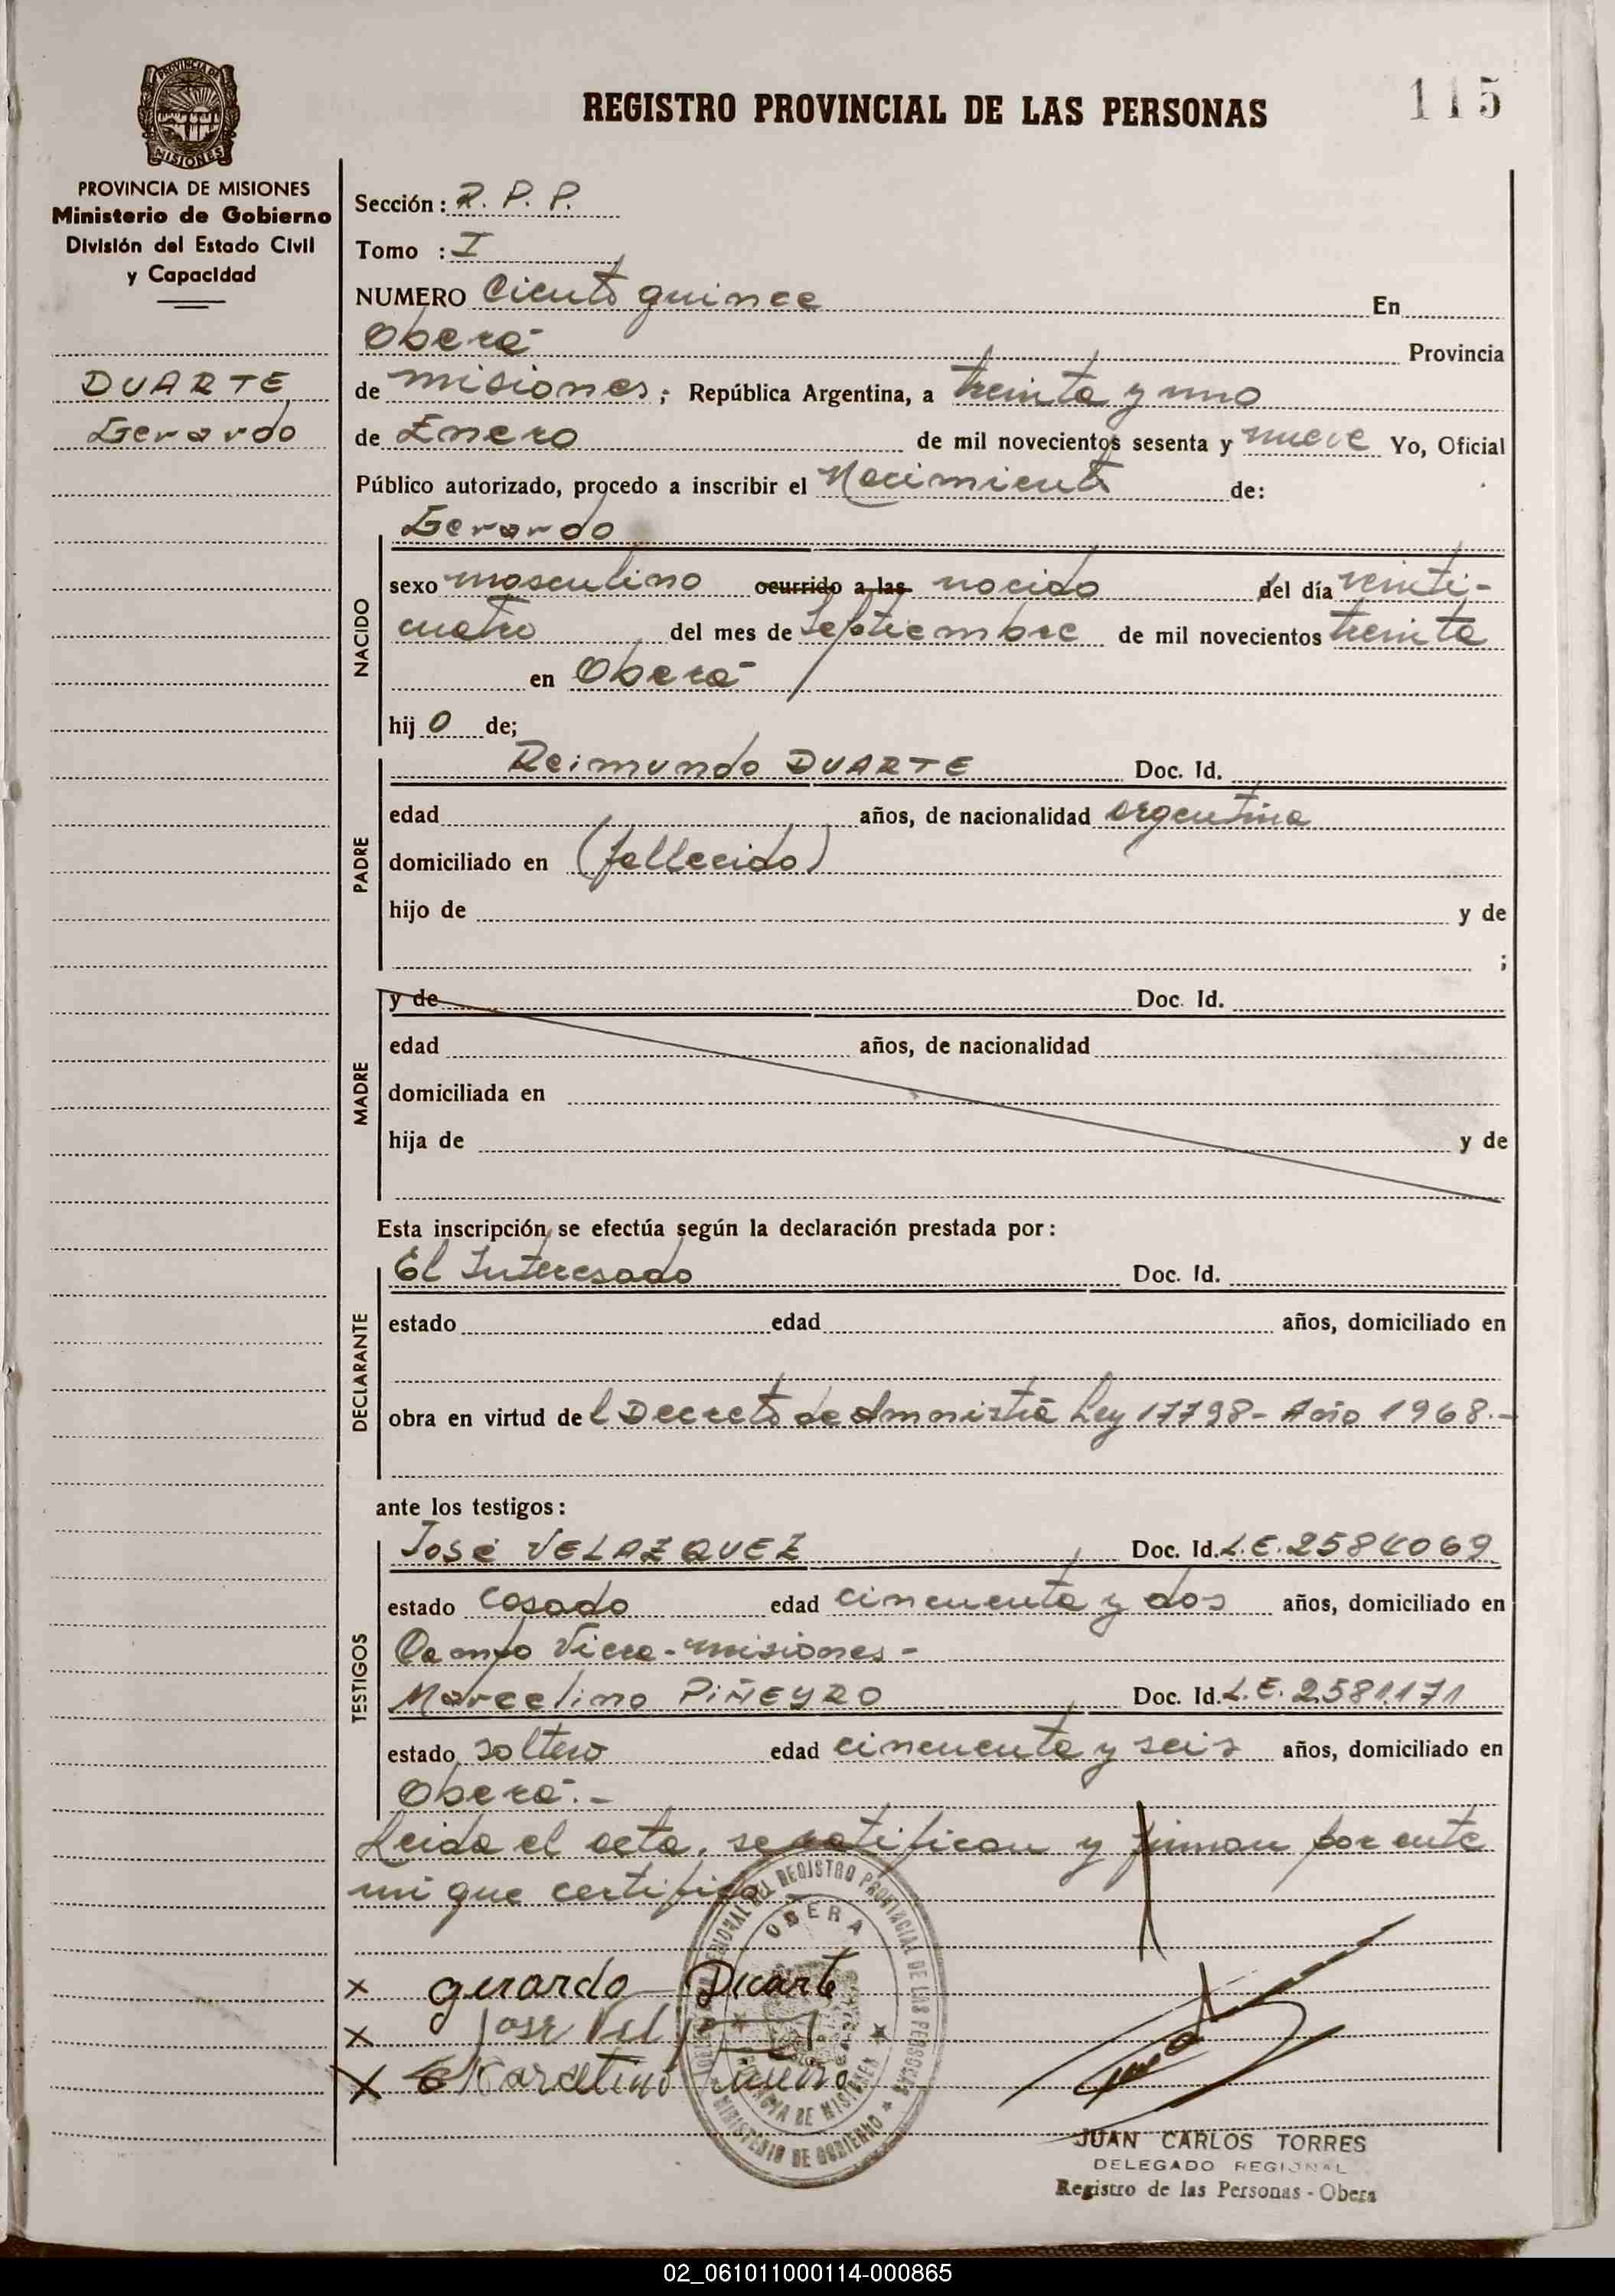 REGISTRO PROVINCIAL DE LAS PERSONAS
115
PROVINCIA DE MISIONES
PROVINCIA DE MISIONES
Ministerio de Gobierno
División del Estado Civil
y Capacidad
DUARTE,
Gerardo
Sección: R. P. P.
Tomo : I
NUMERO Ciento quince En
Oberá Provincia
de misiones; República Argentina, a treinta y uno
de Enero de mil novecientos sesenta y nueve Yo, Oficial
Público autorizado, procedo a inscribir el Nacimiento de:
Gerardo
NACIDO
sexo masculino ocurrido a las nacido del día veinti-
cuatro del mes de Septiembre de mil novecientos treinta
en Oberá
hij o de;
PADRE
Reimundo DUARTE Doc. Id.
edad años, de nacionalidad argentina
domiciliado en (fallecido)
hijo de y de
;
MADRE
y de Doc. Id.
edad años, de nacionalidad
domiciliada en
hija de y de
Esta inscripción se efectúa según la declaración prestada por:
DECLARANTE
El Interesado Doc. Id.
estado edad años, domiciliado en
obra en virtud de l Decreto de Amnistía Ley 17798- Año 1968.-
ante los testigos:
TESTIGOS
José VELAZQUEZ Doc. Id. L.E. 2584069
estado casado edad cincuenta y dos años, domiciliado en
Campo Viera-misiones-
Marcelino PIÑEYRO Doc. Id. L.E. 2.581.171
estado soltero edad cincuenta y seis años, domiciliado en
Oberá.-
Leida el acta, se ratifican y firman por ante
mi que certifico.-
x gerardo Duarte
x Jose
x Marcelino
REGISTRO PROVINCIAL DE LAS PERSONAS
OBERA
PROVINCIA DE MISIONES
MINISTERIO DE GOBIERNO
JUAN CARLOS TORRES
DELEGADO REGIONAL
Registro de las Personas - Obera
02_061011000114-000865